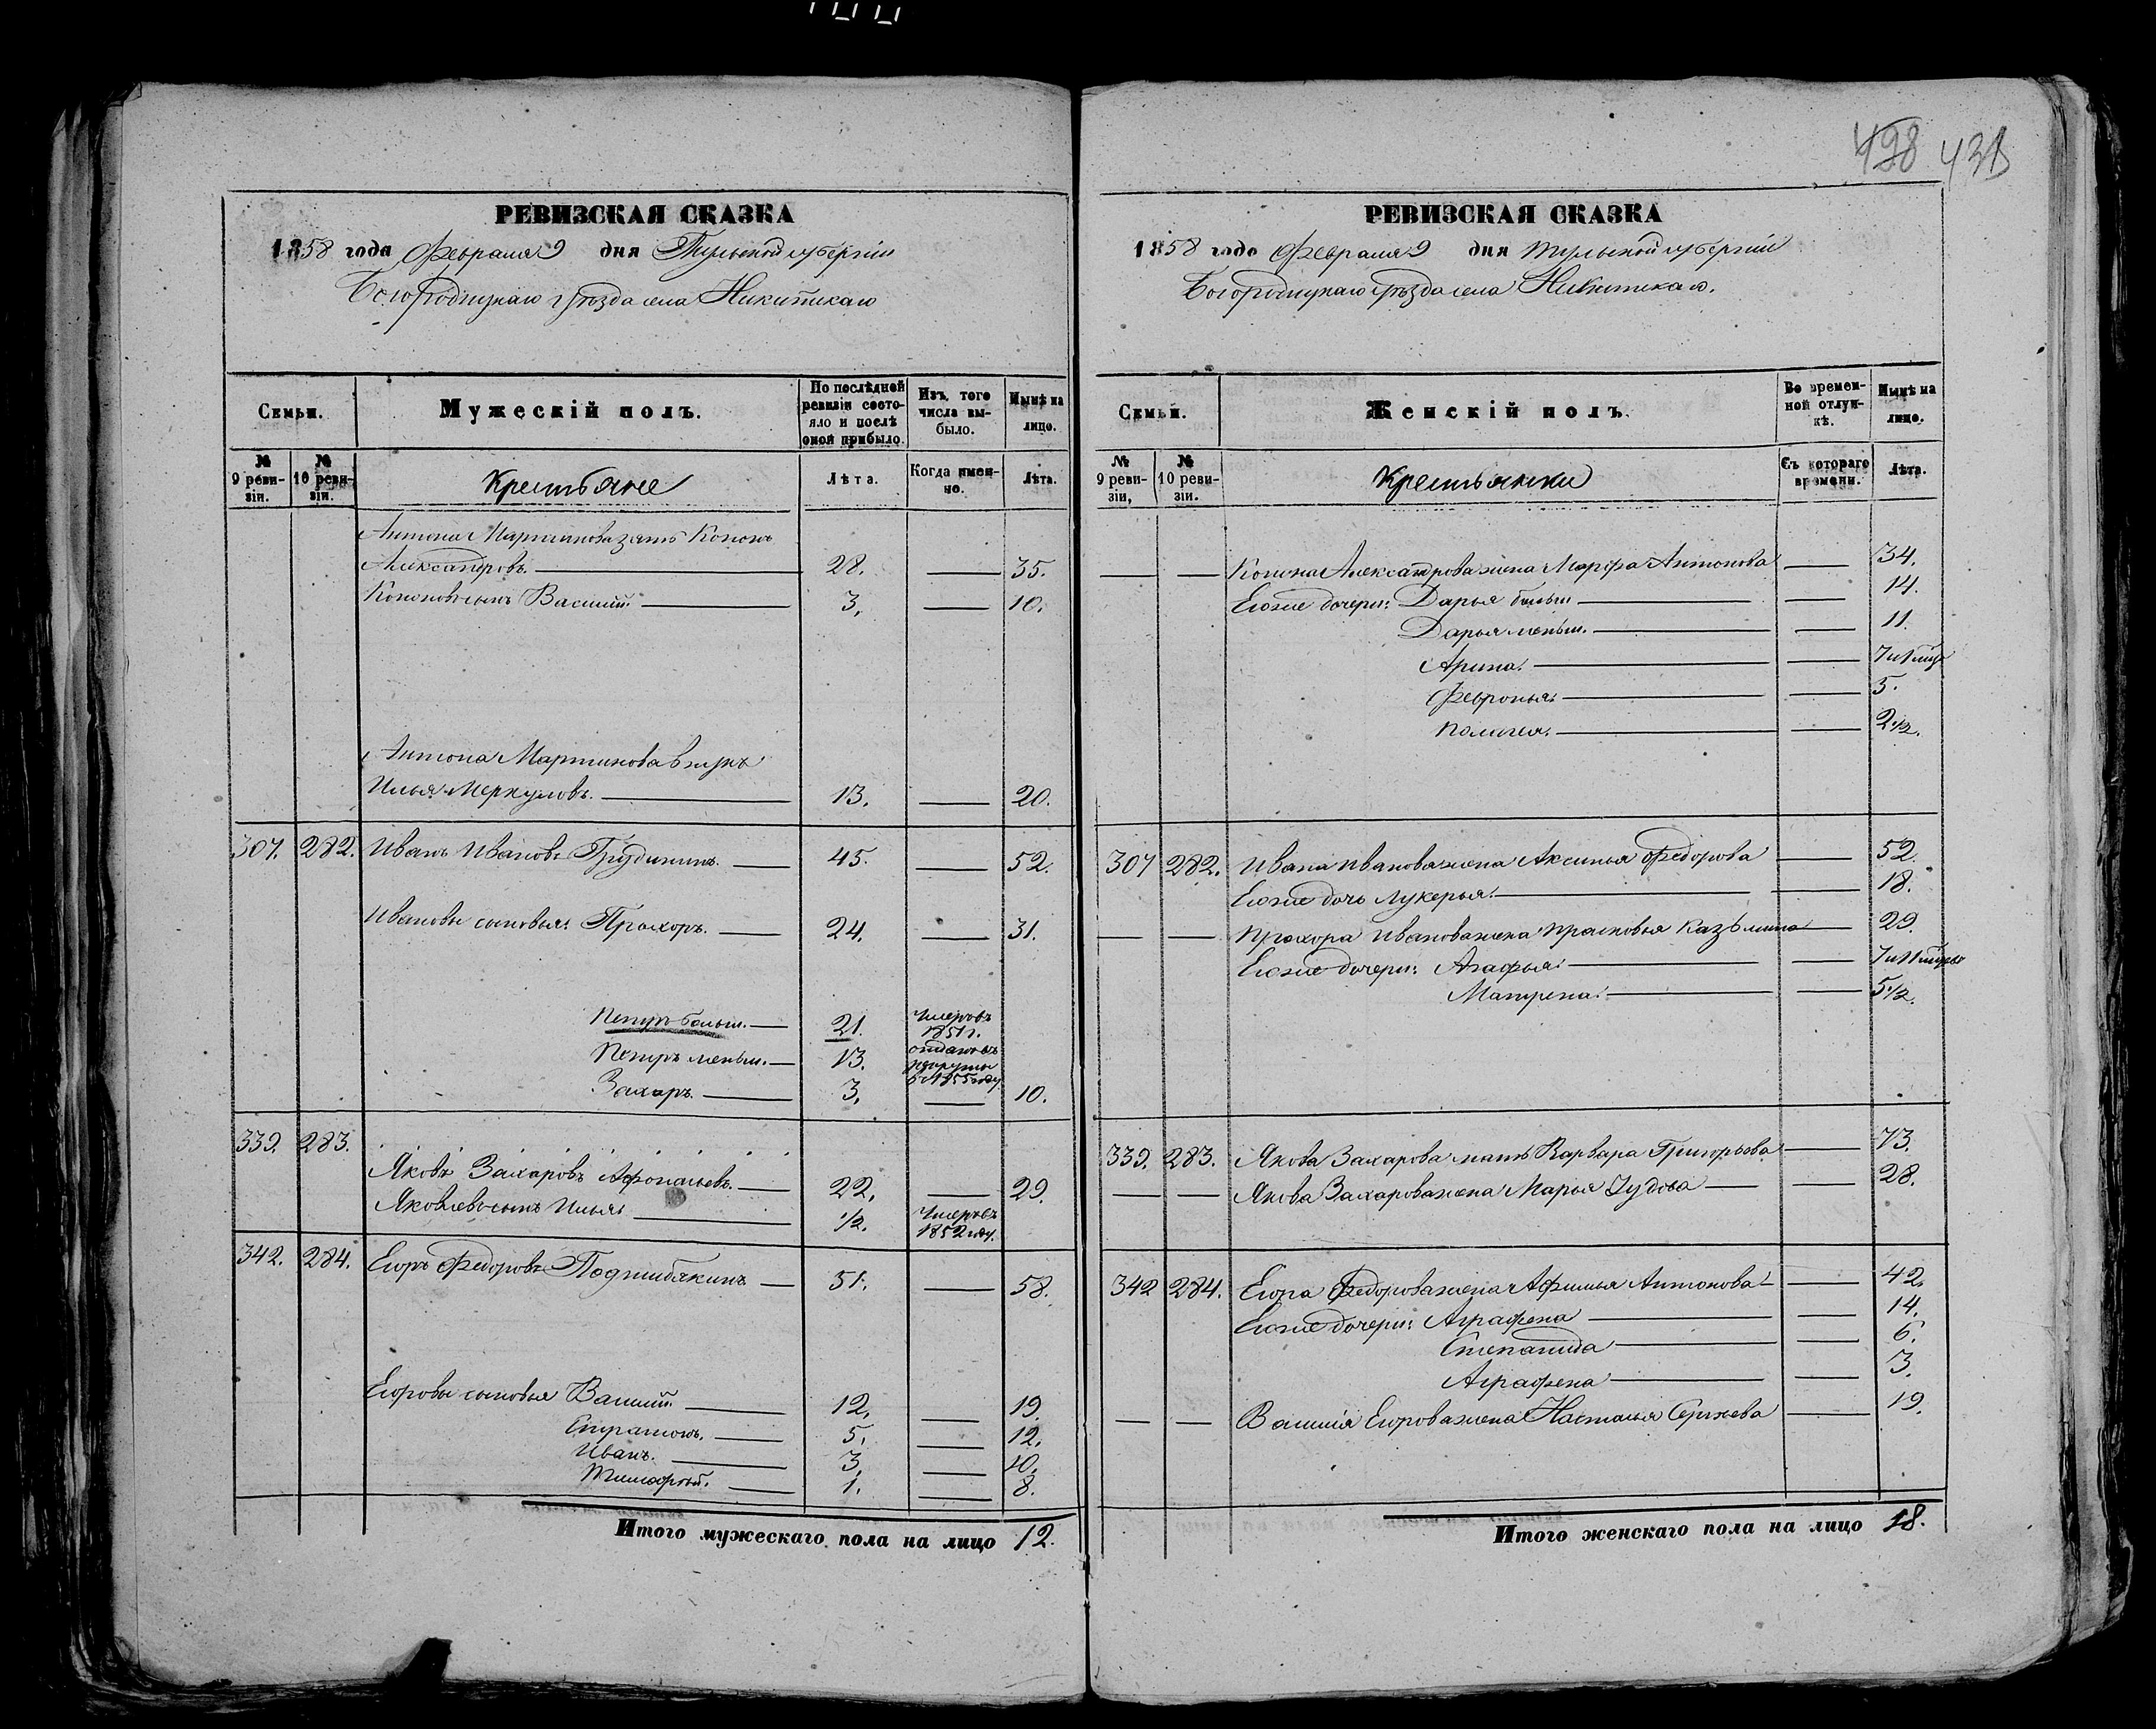 498 431
РЕВИЗСКАЯ СКАЗКА
1858 года Февраля 9 дня Тульской губерніи
Богородицкаго уѣзда села Никитскаго
Семьи.
Мужескій полъ.
По послѣдней ревизіи состояло и послѣ оной прибыло.
Изъ того числа выбыло.
Нынѣ на лицо.
№ 9 ревизіи.
№ 10 ревизіи.
Крестьяне
Лѣта.
Когда именно.
Лѣта.
Антона Мартинова зять Кононъ
Александровъ. 28. 35.
Кононовъ сынъ Василій. 3. 10.
Антона Мартинова внукъ
Илья Меркуловъ. 13. 20.
307. 282. Иванъ Ивановъ Грудининъ. 45. 52.
Ивановы сыновья: Прохоръ. 24. 31.
Петръ больш. 21. Умеръ въ 1851 г.
Петръ меньш. 13. отданъ въ рекруты в 1855 году
Захаръ. 3. 10.
339. 283.
Яковъ Захаровъ Афонасьевъ. 22. 29.
Яковлевъ сынъ Илья 1/2. Умеръ въ 1852 году.
342. 284. Егоръ Федоровъ Подшибякинъ 51. 58.
Егоровы сыновья Василій. 12. 19.
Стратонъ. 5. 12.
Иванъ. 3. 10.
Тимофѣй. 1. 8.
Итого мужескаго пола на лицо 12.
РЕВИЗСКАЯ СКАЗКА
1858 года Февраля 9 дня Тульской губерніи
Богородицкаго уѣзда села Никитскаго.
Семьи.
Женскій полъ.
Во временной отлучкѣ.
Нынѣ на лицо.
№ 9 ревизіи,
№ 10 ревизіи.
Крестьянки
Съ котораго времени.
Лѣта.
Конона Александрова жена Марфа Антонова 34.
Егоже дочери: Дарья больш 14.
Дарья меньш. 11.
Арина. 7 и 1 мѣц
Февронья. 5.
Полагея. 2 1/2.
307 282. Ивана Иванова жена Аксинья Федорова 52.
Егоже дочь Лукерья. 18.
Прохора Иванова жена Прасковья Казьмина 29.
Егоже дочери: Агафья. 7 и 11 мѣцвъ
Матрена. 5 1/2.
339. 283. Якова Захарова мать Варвара Григорьева 73.
Якова Захарова жена Марья Гудова 28.
342 284. Егора Федорова жена Афимья Антонова 42.
Егоже дочери: Аграфена 14.
Степанида 6.
Аграфена 3.
Василія Егорова жена Настасья Сергѣева 19.
Итого женскаго пола на лицо 18.